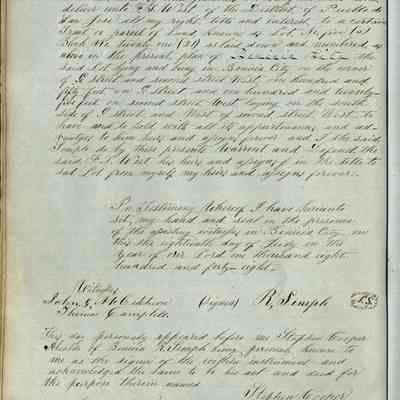 deliver unto F. S. West of the District of Pueblo de
San Jose all my right, title and interest, to a certain
Tract or parcel of Land known as Lot No. five (5)
Block No. Twenty one (21) as laid down and numbered as
above in the present plan of Benicia City the
said Lot lying and being in Benicia City on the corner
of street and second street West, one hundred and
fifty feet on street and one hundred and twenty
five feet on second street West laying on the south
side of street and West of second street West. to
have and to hold with all its appurtenances and
to him heirs and assigns forever and I the said
Semple do by these presents Warrant and Defend the
said F. S. West his heirs and assigns in the title to
sad Lot from myself my heirs and assigns forever.
In Testimony Whereof I have hereunto
set, my hand and seal in the presence
of the witnesses in Benicia City on
this the eighteenth day of in the
Year of our Lord one thousand eight
hundred and forty-eight.
Witness
John
Thomas Campbell (signed) R. Semple L.S.
This day personally appeared before me Stephen Cooper
Alcalde of Benicia R. Semple being personally known to
me as the signer of the written instrument and
acknowledged the same to be his act and deed for
the purpose therein named
Stephen Cooper